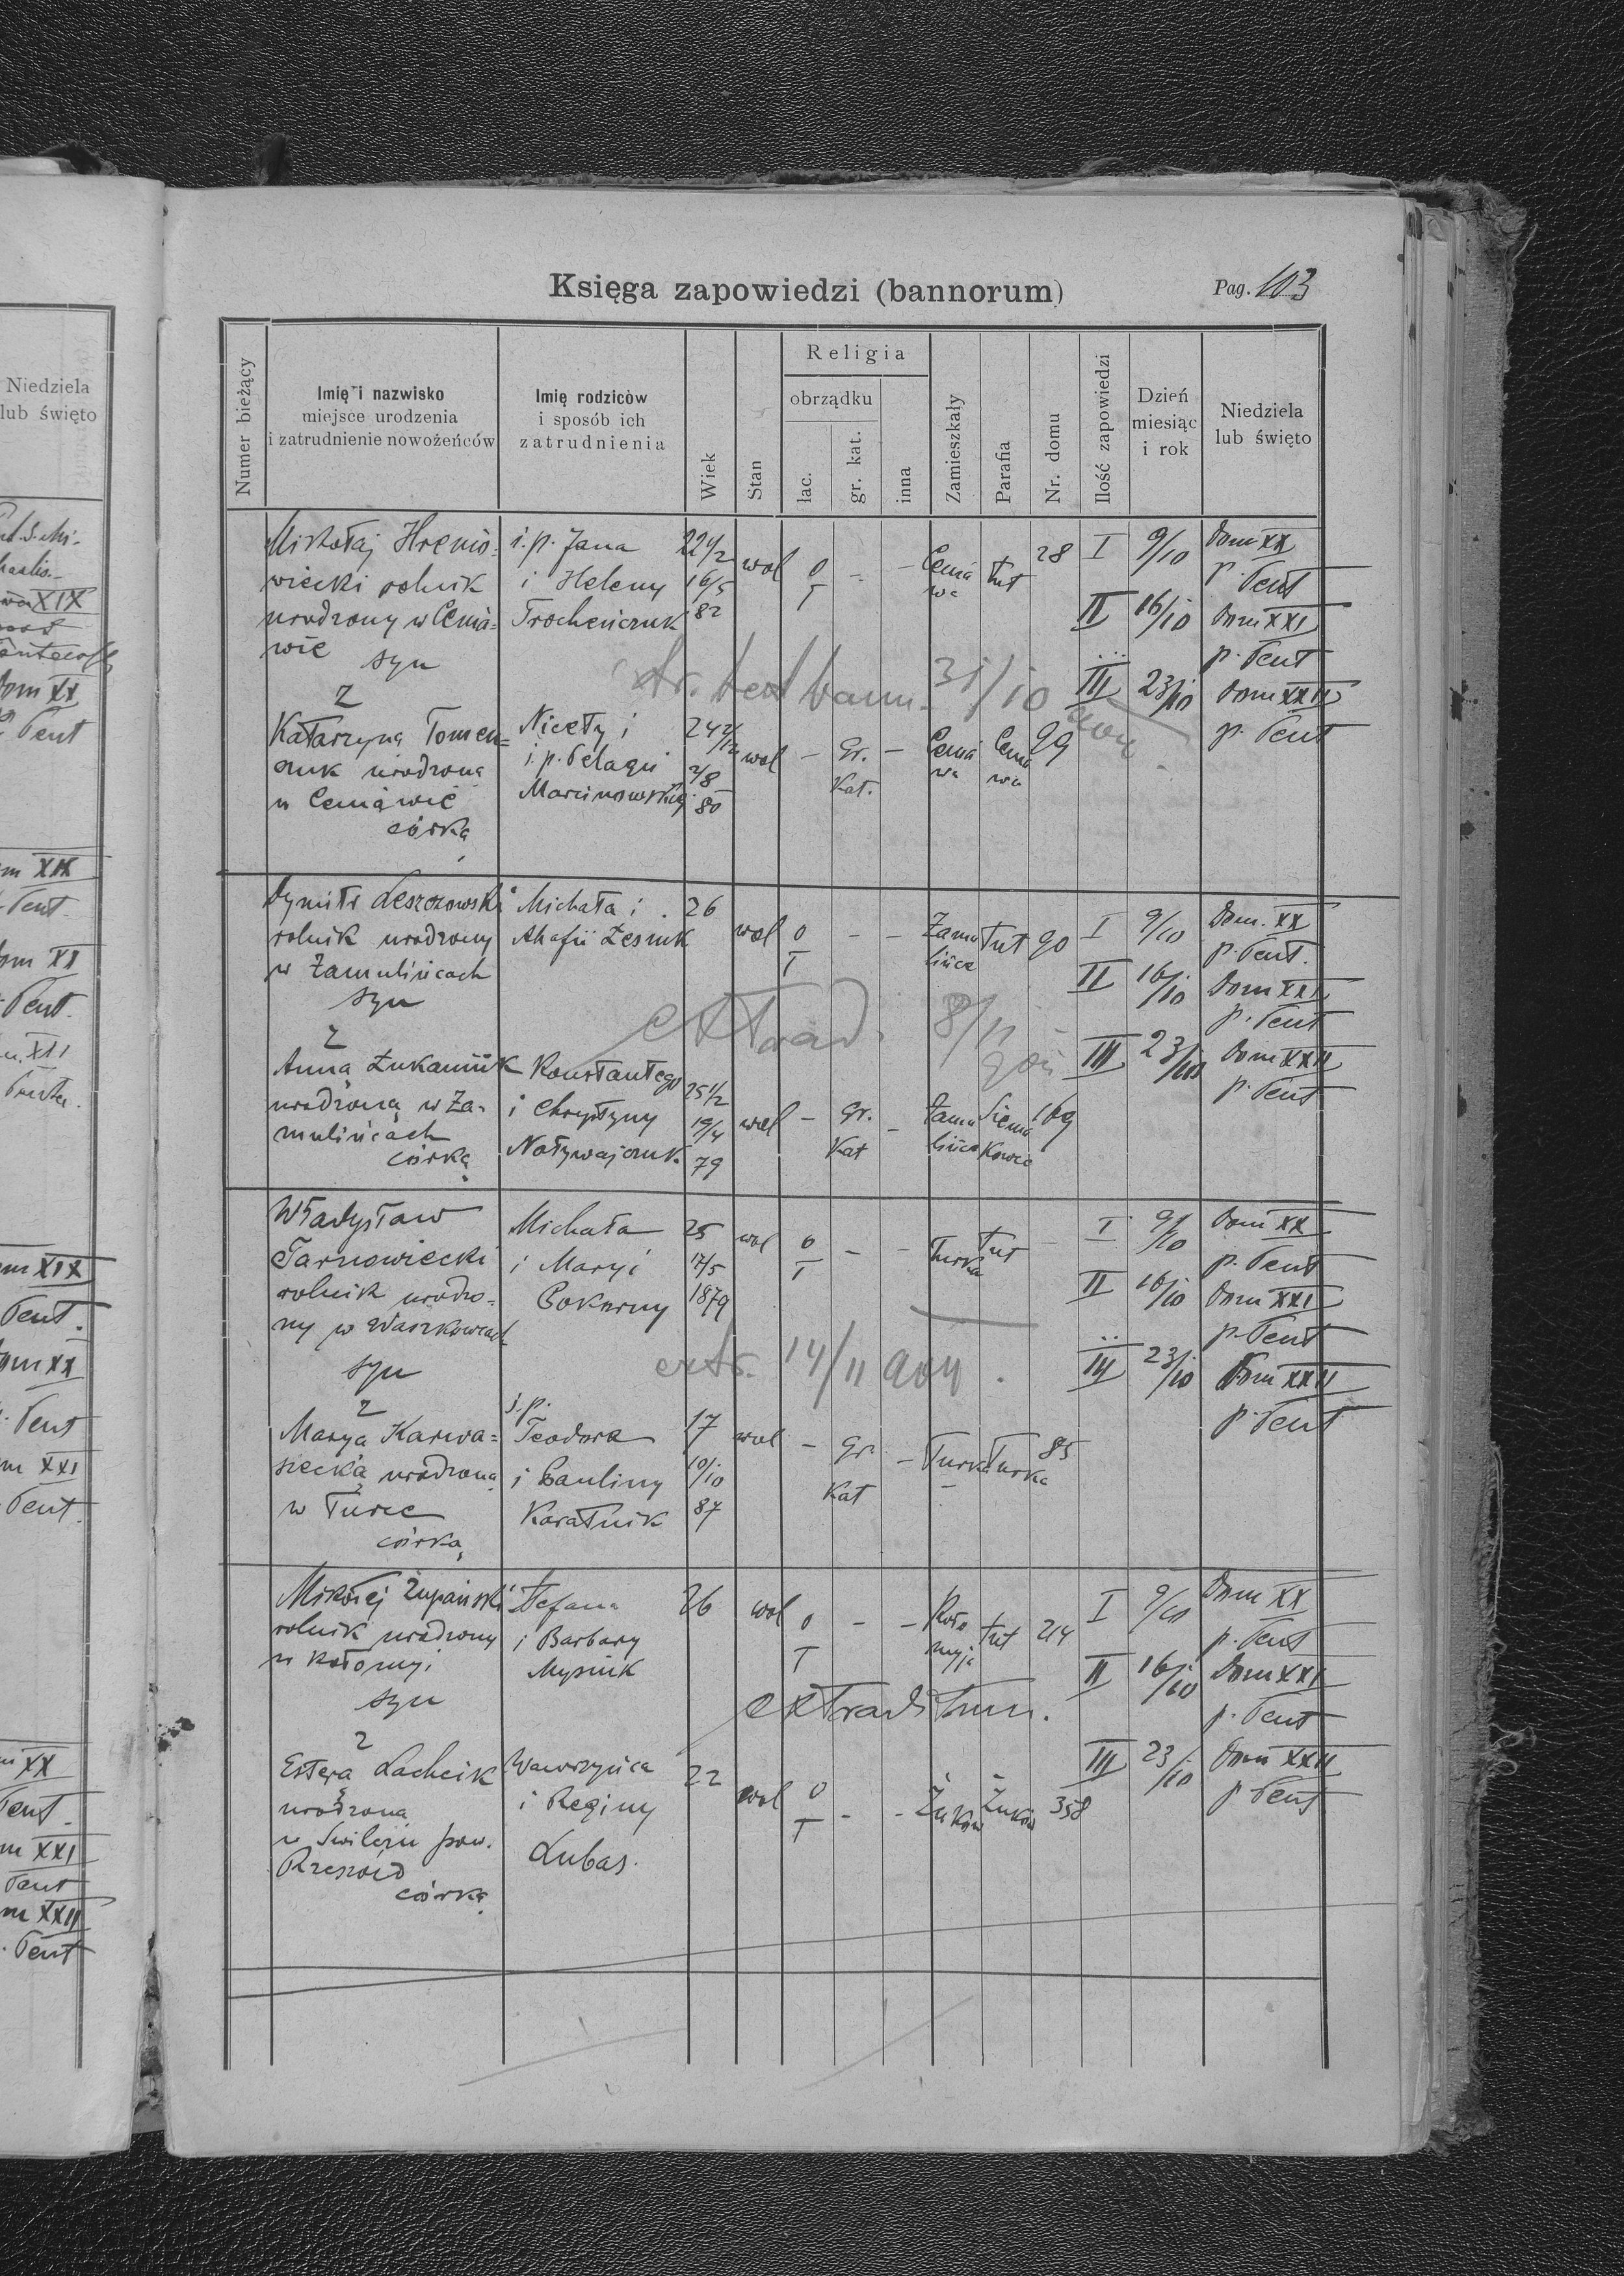 Księga zapowiedzi (bannorum)
Pag. 103
Niedziela
lub święto
Numer bieżący
Imię i nazwisko
miejsce urodzenia
i zatrudnienie nowożeńców
Imię rodziców
i sposób ich
zatrudnienia
Wiek
Stan
Religia
obrządku
łac.
gr. kat.
inna
Zamieszkały
Parafia
Nr. domu
Ilość zapowiedzi
Dzień
miesiąc
i rok
Niedziela
lub święto
Mikołaj Hrenio= ś. p. Jana 22 1/2 wol o - - Cenia tut 28 I 9/10 Dom XX
wiecki rolnik i Heleny 16/5 T wa p. Pent
urodzony w Cenia= Trocheńczuk 82 II 16/10 Dom XXI
wie p. Pent
syn
bann. 31/10 III 23/10 Dom XXII
z p. Pent
Katarzyna Tomen= Nicety i 24 2/12 wol - Gr. - Cenia Cenia 29
czuk urodzona i. p. Pelagii 2/8 Kat. wa wa
w Ceniawie Marcinowskiej 80
córką
Dymitr Leszczowski Michała i 26 wol o - - Zamu tut 90 I 9/10 Dom. XX
rolnik urodzony Ahafii Zesiuk T lińce p. Pent.
w Zamulińcach II 16/10 Dom XXI
syn p. Pent
extrad. 8/11
z III 23/10 Dom XXII
Anna Łukaniuk Konstantego 25 1/2 p. Pent
urodzona w Za- i Chrystyny 19/4 wol - Gr. - Zamu Siema 169
mulińcach Kat lińce kowce
córką 79
Władysław Michała 25 wol o - - Turka tut - I 9/10 Dom XX
Tarnowiecki i Maryi 17/5 T p. Pent
rolnik urodzo- Pokorny 1879 II 16/10 Dom XXI
ny w Waszkowcach p. Pent
syn extr. 14/11 904. III 23/10 Dom XXII
z ś. p. p. Pent
Marya Karwa= Teodora 17 wol - Gr - Turka Turka 85
siecka urodzona i Pauliny 10/10 Kat
w Turce Karatnik 87
córką
Mikołaj Żupański Stefana 26 wol o - - Koło tut 214 I 9/10 Dom XX
rolnik urodzony i Barbary T myja p. Pent
w Kołomyi Mysiuk II 16/10 Dom XXI
syn extraditum. p. Pent
z III 23/10 Dom XXII
Estera Lachcik Wawrzyńca 22 wol o - - Żuków Żuków 358 p. Pent
urodzona i Reginy T
w Swilczu pow. Lubas.
Rzeszów
córką